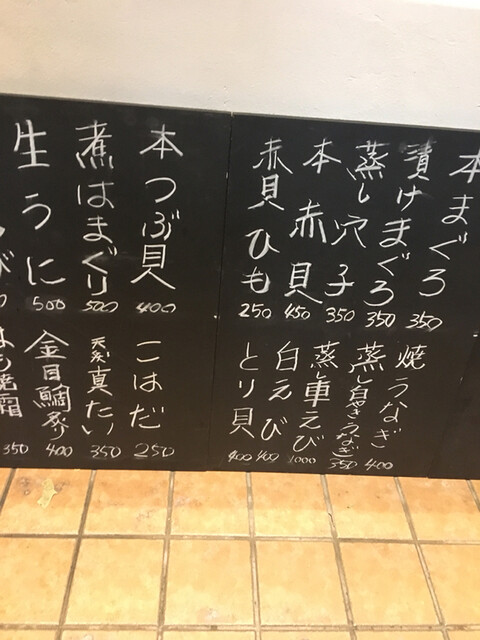 本まぐろ
漬けまぐろ 350
蒸し穴子 350
本赤貝 450
赤貝ひも 250
焼うなぎ 400
蒸し白やきうなぎ 350
蒸し車えび 1000
白えび 400
とり貝 400
本つぶ貝 400
煮はまぐり 500
生うに 500
こはだ 250
天然真たい 350
金目鯛炙り 400
350